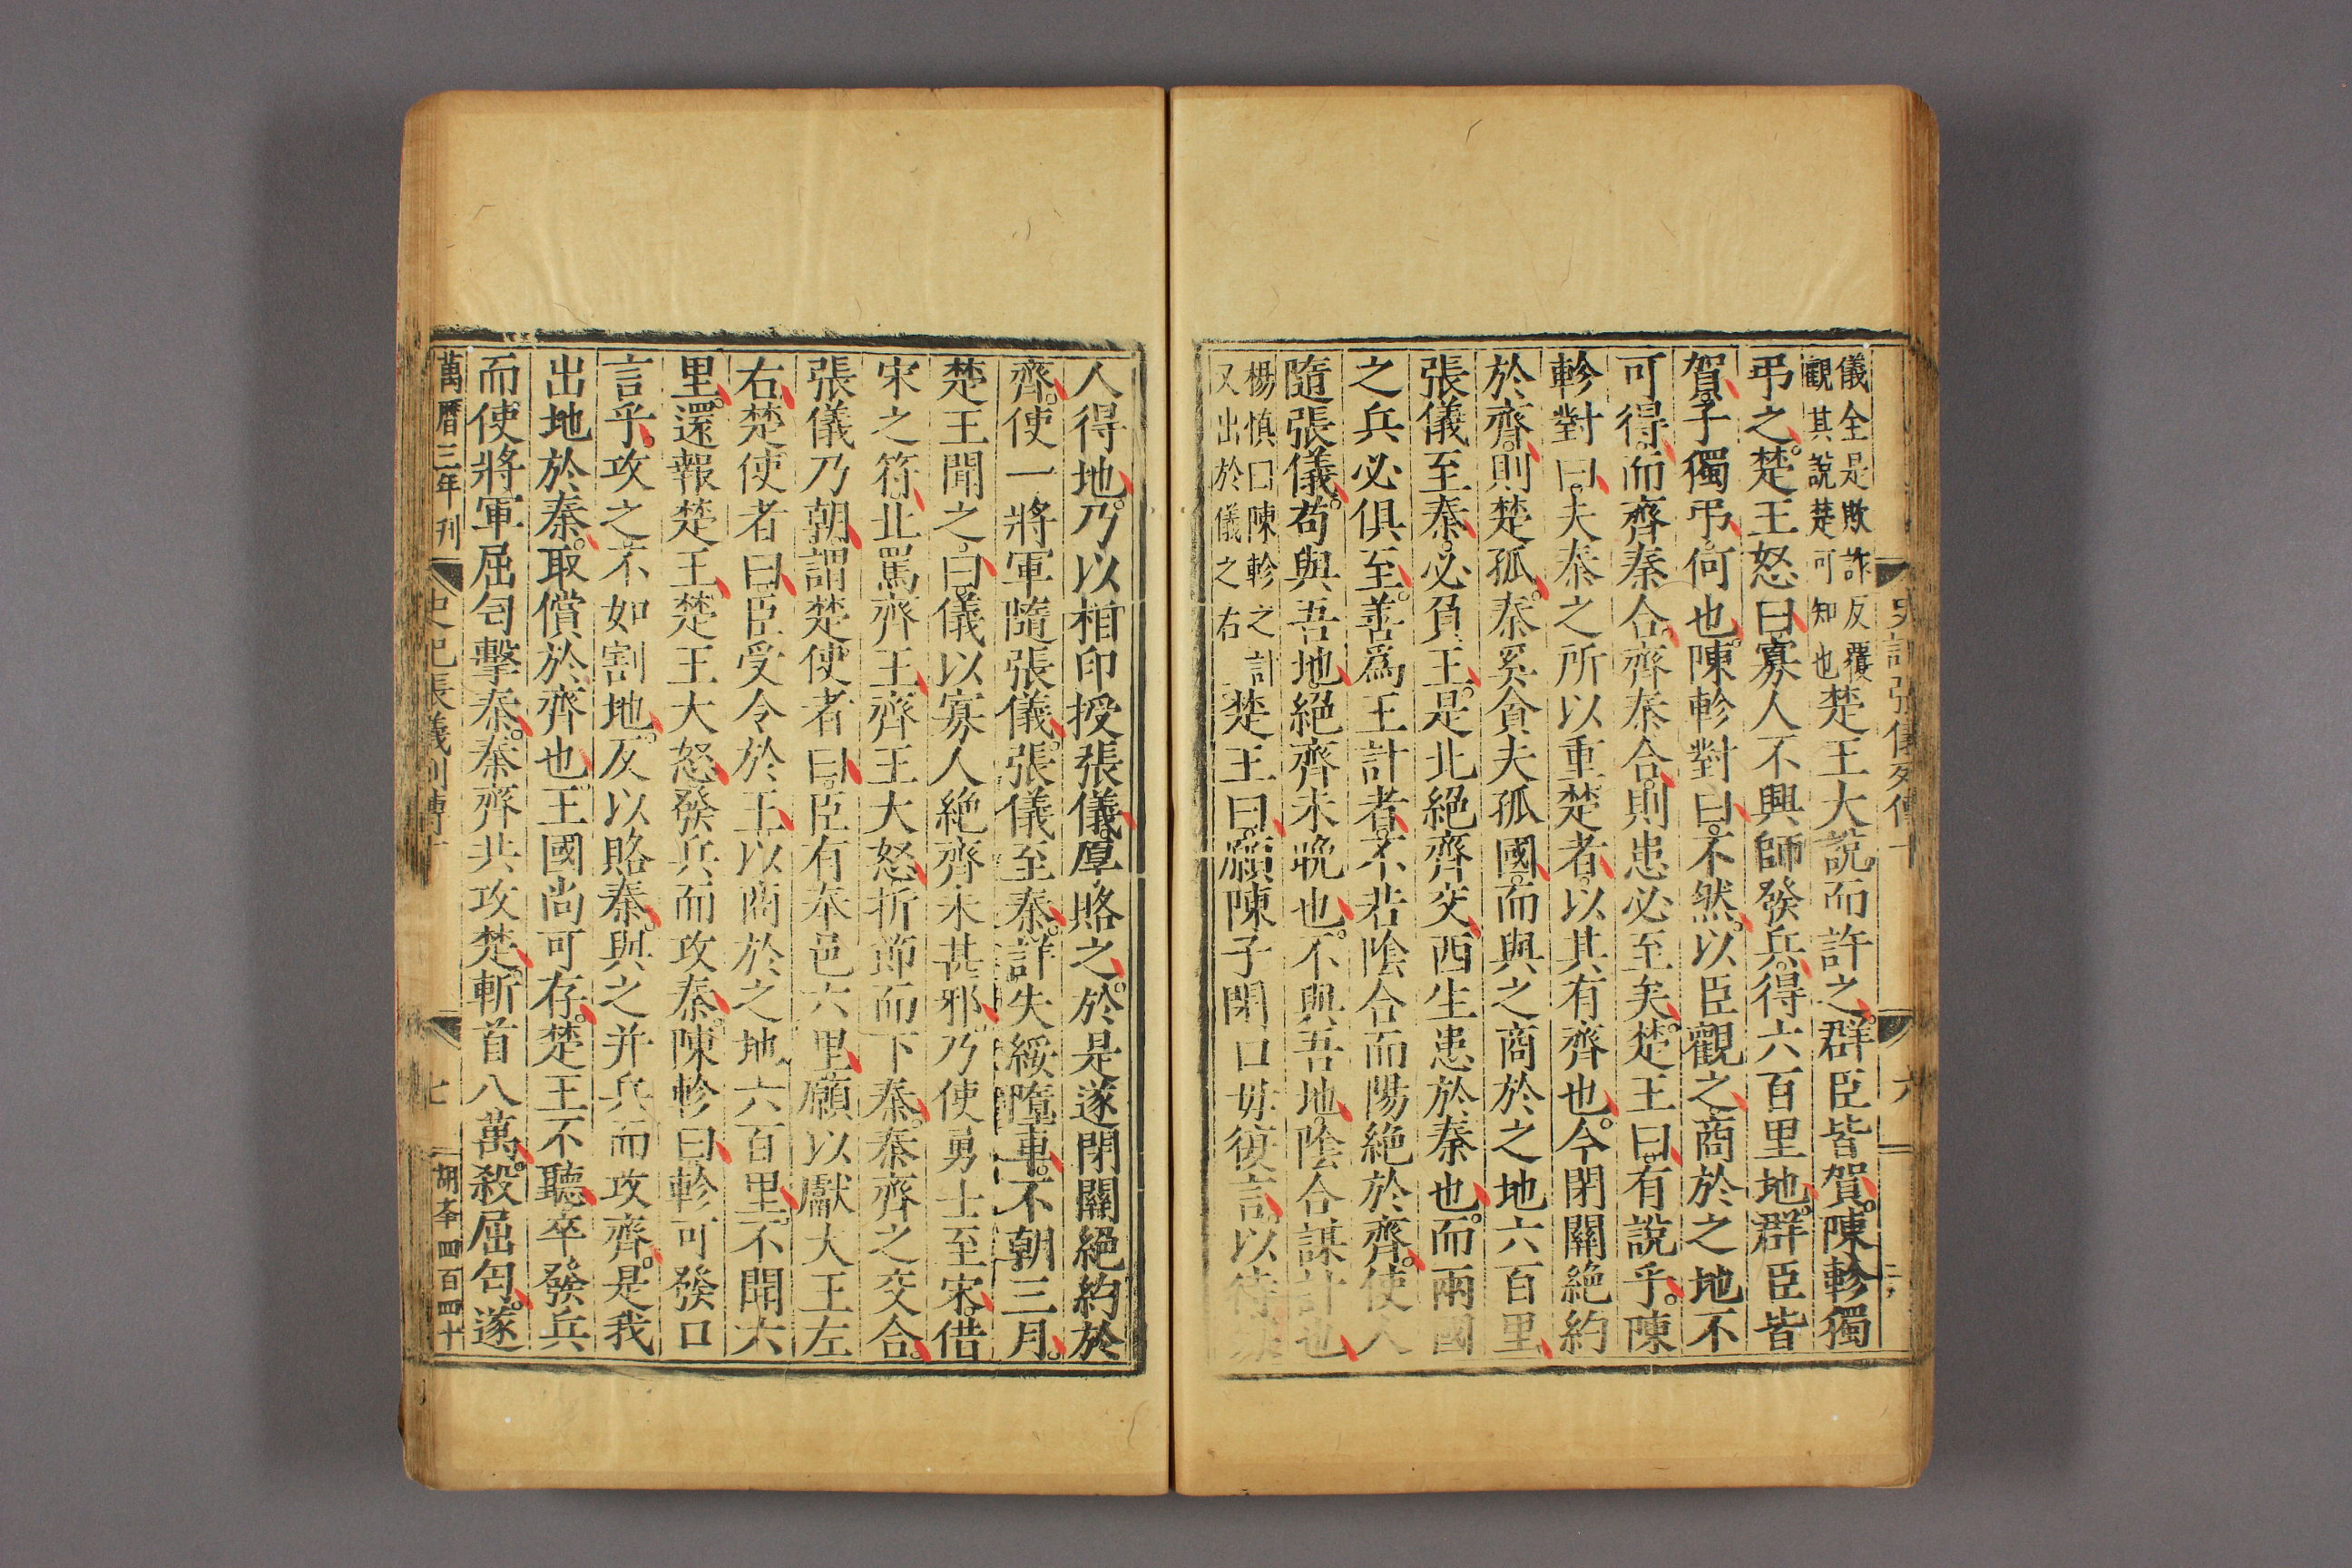 史記張儀列傳十
六
儀全是欺詐反覆
觀其說楚可知也
楚王大說而許之群臣皆賀陳軫獨
弔之楚王怒曰寡人不興師發兵得六百里地群臣皆
賀子獨弔何也陳軫對曰不然以臣觀之商於之地不
可得而齊秦合齊秦合則患必至矣楚王曰有說乎陳
軫對曰夫秦之所以重楚者以其有齊也今閉關絕約
於齊則楚孤秦奚貪夫孤國而與之商於之地六百里
張儀至秦必負王是北絕齊交西生患於秦也而兩國
之兵必俱至善爲王計者不若陰合而陽絕於齊使人
隨張儀苟與吾地絕齊未晚也不與吾地陰合謀計也
楊慎曰陳軫之計
又出於儀之右
楚王曰願陳子閉口毋復言以待寡
人得地乃以相印授張儀厚賂之於是遂閉關絕約於
齊使一將軍隨張儀張儀至秦詳失綏墮車不朝三月
楚王聞之曰儀以寡人絕齊未甚邪乃使勇士至宋借
宋之符北罵齊王齊王大怒折節而下秦秦齊之交合
張儀乃朝謂楚使者曰臣有奉邑六里願以獻大王左
右楚使者曰臣受令於王以商於之地六百里不聞六
里還報楚王楚王大怒發兵而攻秦陳軫曰軫可發口
言乎攻之不如割地反以賂秦與之并兵而攻齊是我
出地於秦取償於齊也王國尚可存楚王不聽卒發兵
而使將軍屈匄擊秦秦齊共攻楚斬首八萬殺屈匄遂
萬曆三年刊
史記張儀列傳十
七
胡本四百四十